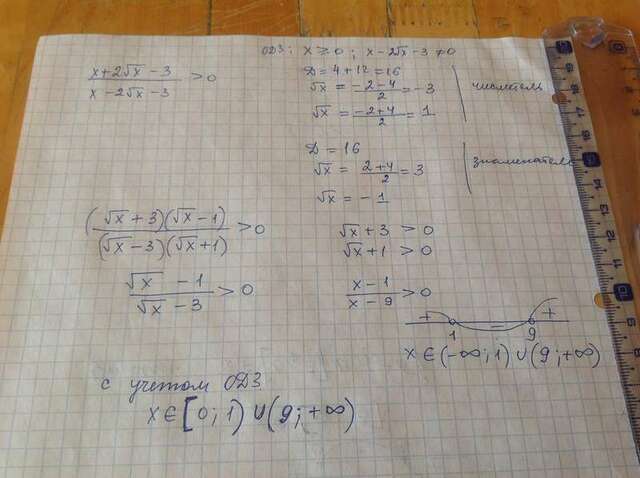 ОДЗ: x ≥ 0 ; x - 2√x - 3 ≠ 0
(x + 2√x - 3)/(x - 2√x - 3) > 0
D = 4 + 12 = 16
√x = (-2-4)/2 = -3
√x = (-2+4)/2 = 1
числитель
D = 16
√x = (2+4)/2 = 3
√x = -1
знаменатель
((√x + 3)(√x - 1))/((√x - 3)(√x + 1)) > 0
√x + 3 > 0
√x + 1 > 0
(√x - 1)/(√x - 3) > 0
(x - 1)/(x - 9) > 0
+ - +
1 9
x ∈ (-∞; 1) ∪ (9; +∞)
с учетом ОДЗ
x ∈ [0; 1) ∪ (9; +∞)